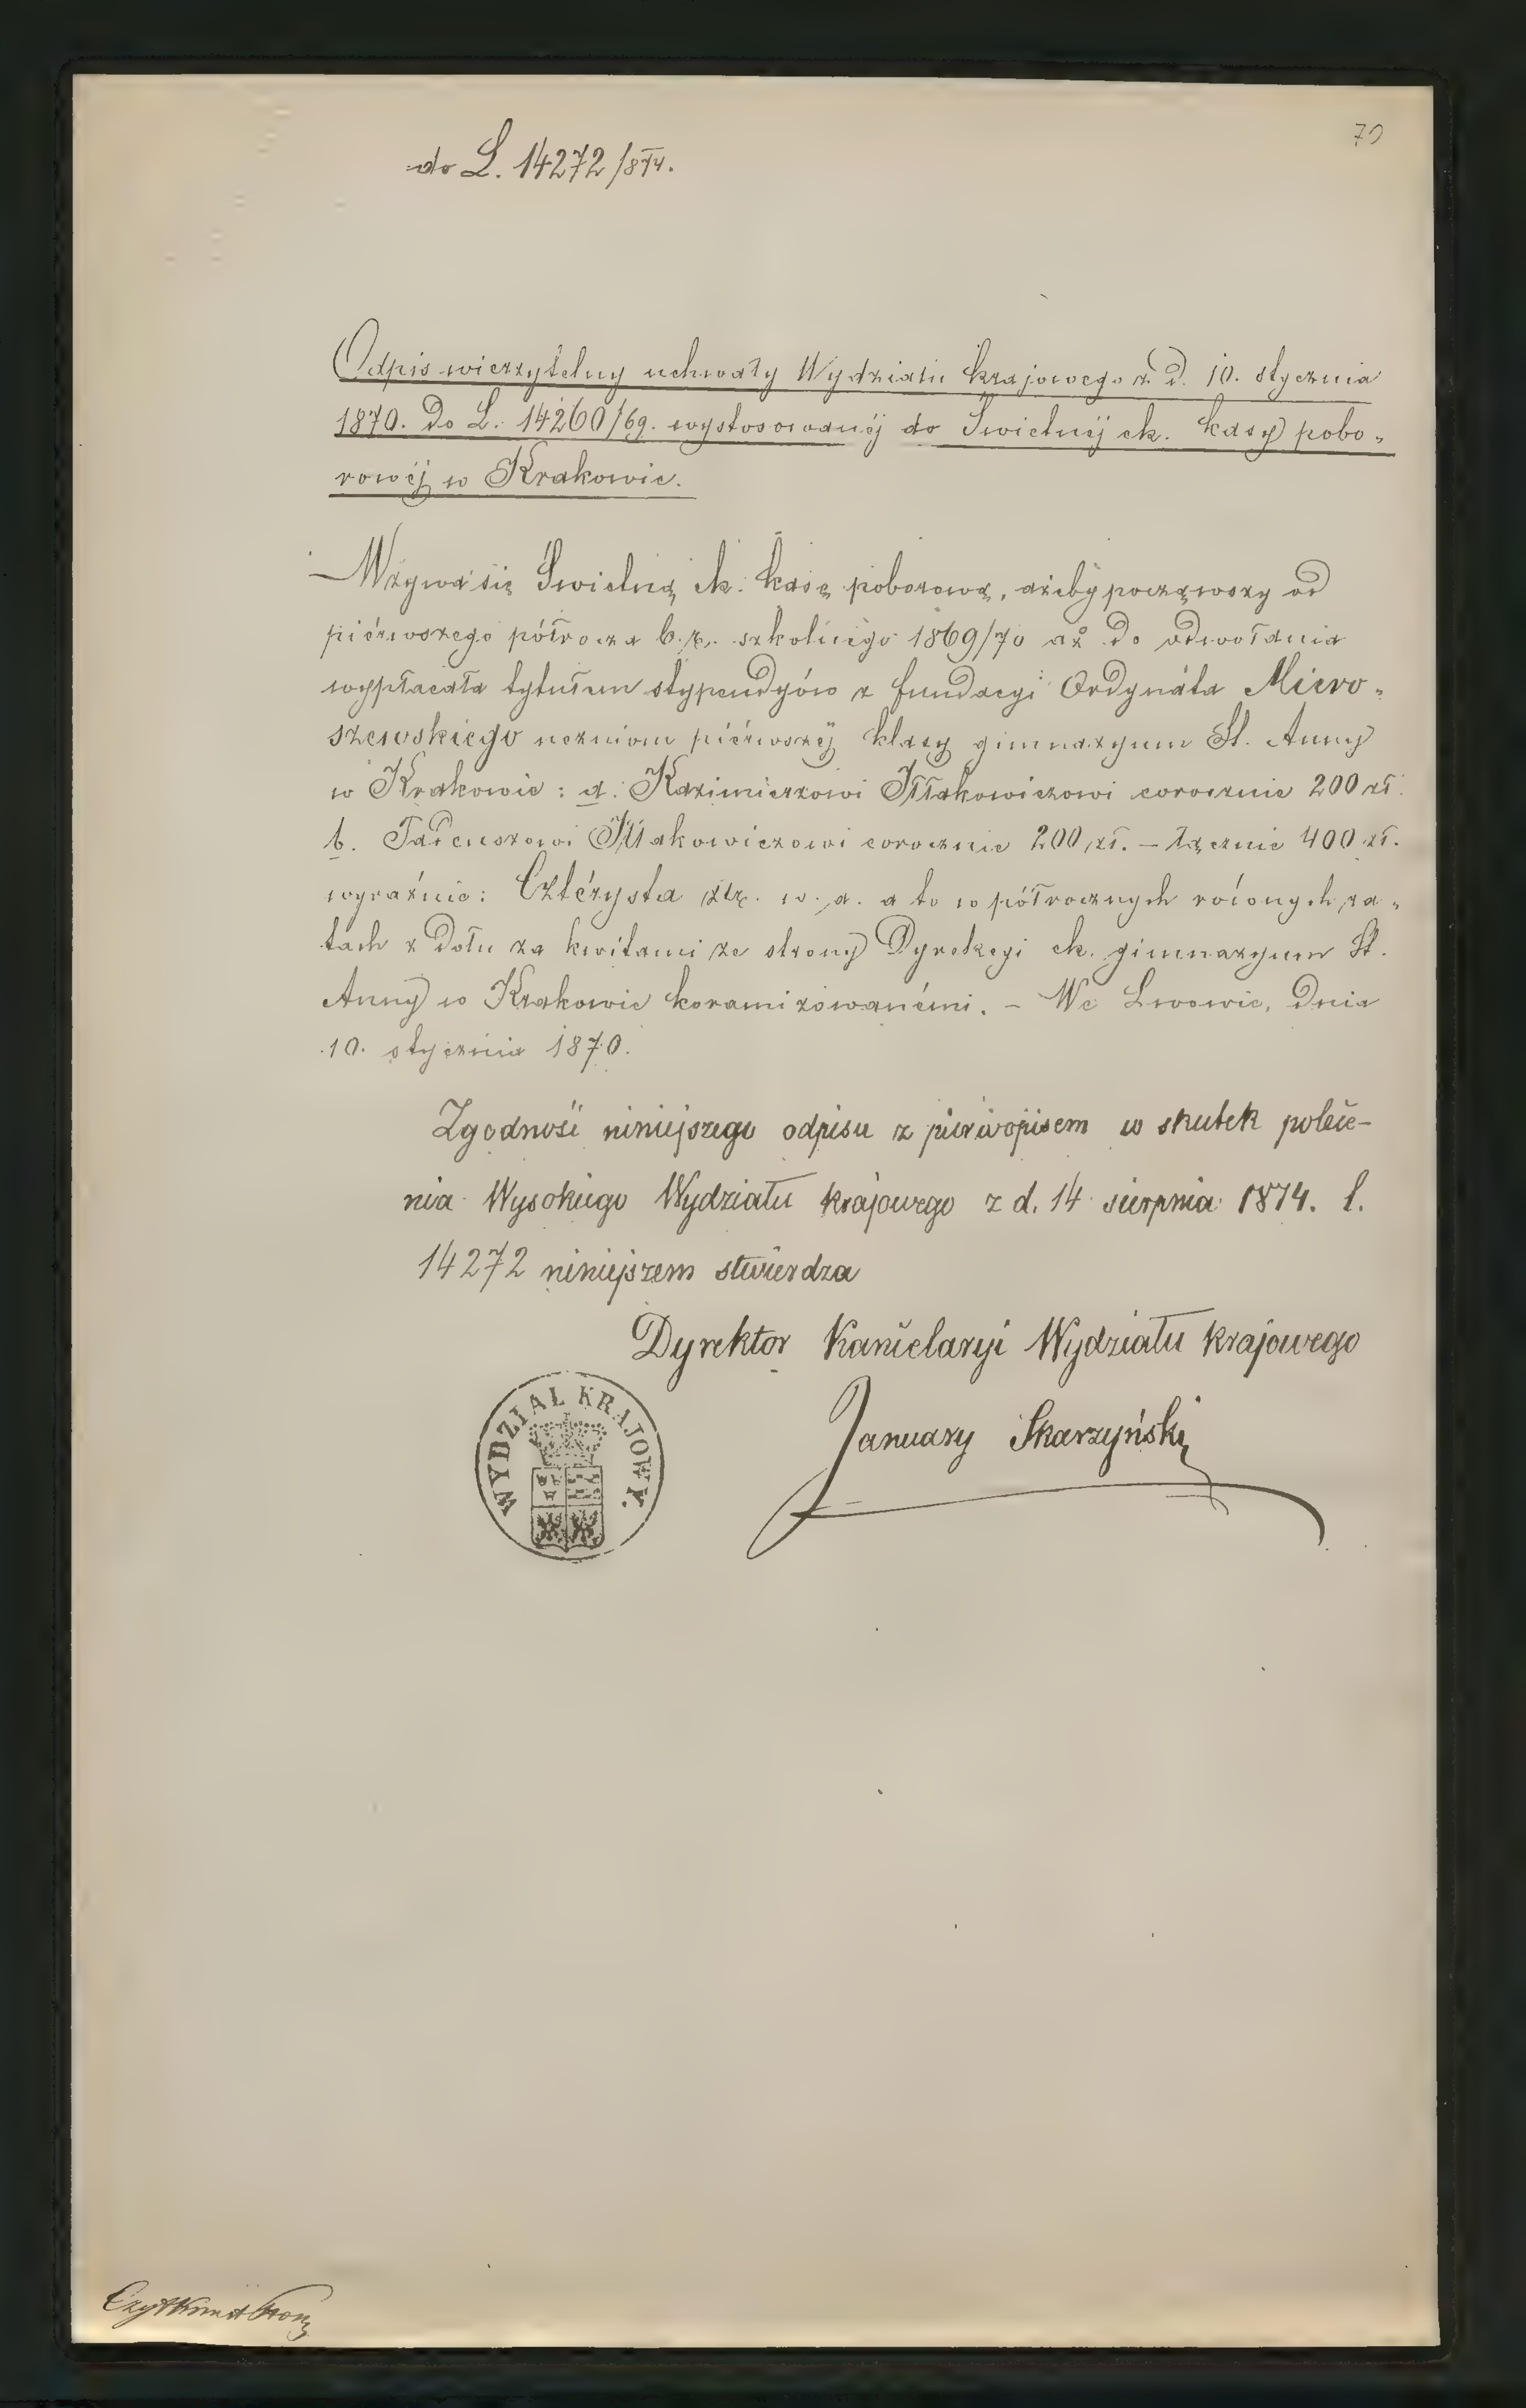 70
do L. 14272/874.
Odpis wierzytelny uchwały Wydziału krajowego z d. 10. stycznia
1870. do L. 14260/69. wystosowanéj do Świetnéj ck. kasy pobo-
rowéj w Krakowie.
Wzywa się Świetną ck. kasę poborową, ażeby począwszy od
piérwszego półrocza b. r. szkolnego 1869/70 aż do odwołania
wypłacała tytułem stypendyów z fundacyi Ordynata Miero-
szewskiego uczniom piérwszéj klasy gimnazyum Śt. Anny
w Krakowie: a. Kazimierzowi Iłłakowiczowi corocznie 200 zł.
b. Tadeuszowi Iłłakowiczowi corocznie 200 zł. – łącznie 400 zł.
wyraźnie: Cztérysta złr. w. a. a to w półrocznych równych ra-
tach z dołu za kwitami ze strony Dyrekcyi ck. gimnazyum Śt.
Anny w Krakowie koramizowanémi. – We Lwowie, dnia
10. stycznia 1870.
Zgodność niniejszego odpisu z pierwopisem w skutek polece-
nia Wysokiego Wydziału krajowego z d. 14 sierpnia 1874. l.
14272 niniejszem stwierdza
Dyrektor Kancelaryi Wydziału krajowego
January Skarzyński
WYDZIAŁ KRAJOWY.